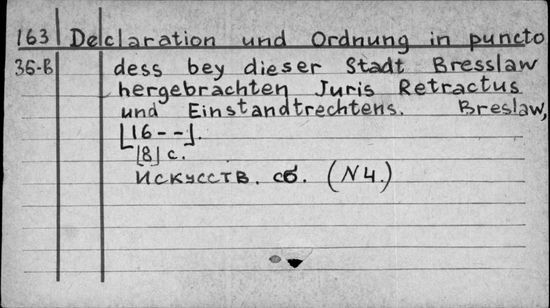 163 Declaration und Ordnung in puncto
36-В dess bey dieser Stadt Bresslaw
hergebrachten Juris Retractus
und Einstandtrechtens. Breslaw,
[16--].
[8] с.
Искусств. сб. (N4.)